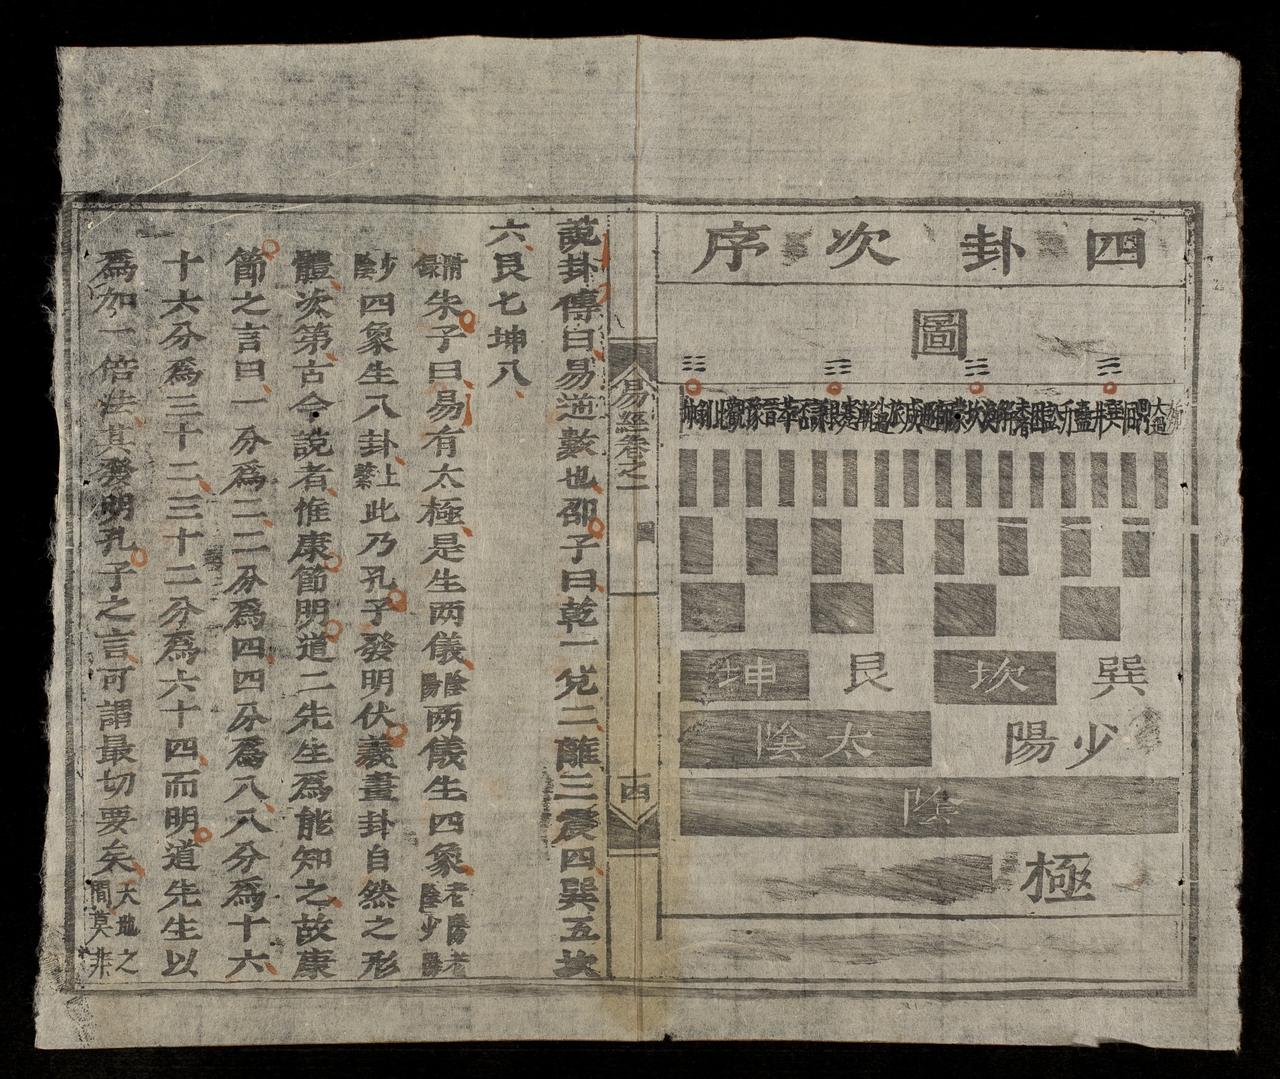 四卦次序
圖
巽 坎 艮 坤
少陽 太陰
陰
極
易經卷之一
四
說卦傳曰易逆數也邵子曰乾一兌二離三震四巽五坎
六艮七坤八
附錄朱子曰易有太極是生両儀陰陽両儀生四象老陽老陰少陽
少陰四象生八卦上繫此乃孔子發明伏羲畫卦自然之形
體次第古今說者惟康節明道二先生為能知之故康
節之言曰一分為二二分為四四分為八八分為十六
十六分為三十二三十二分為六十四而明道先生以
為加一倍法其發明孔子之言可謂最切要矣天地之間莫非